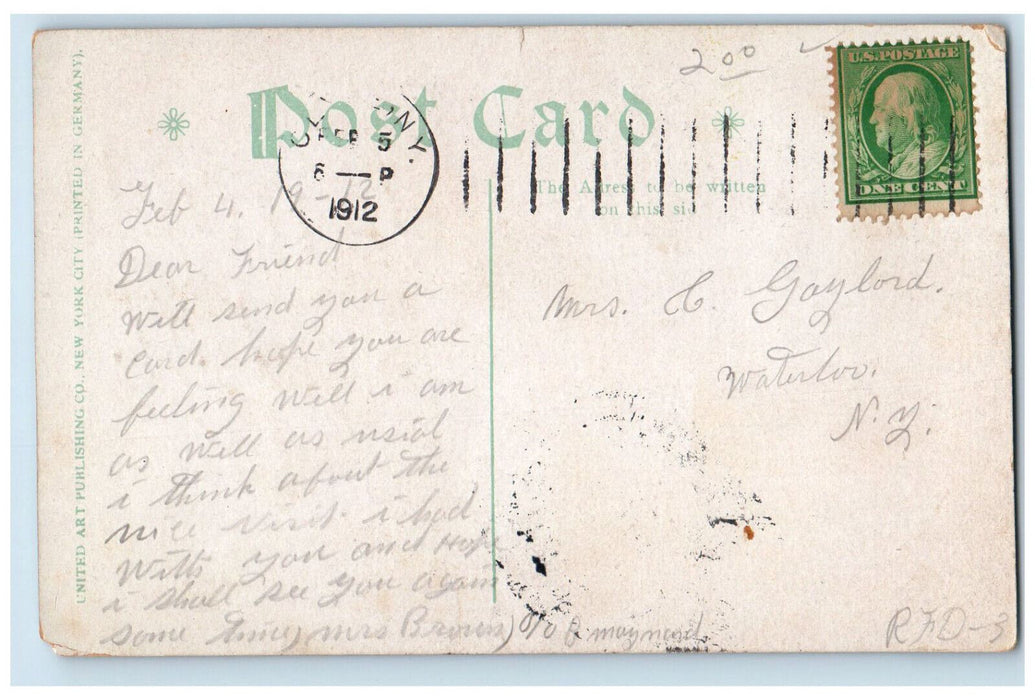 UNITED ART PUBLISHING CO., NEW YORK CITY (PRINTED IN GERMANY).
Post Card
2 00
U.S. POSTAGE
ONE CENT
N.Y.
FEB 5
6 — P
1912
The Adress to be written
on this side
Feb 4. 19-12
Dear Friend
Will send you a
Card. hope you are
feeling well i am
as well as usial
i think about the
nice visit i had
With you and Hope
i shall see you again
some time, Mrs Brown) c/o E maynard
Mrs. C. Gaylord.
Waterloo.
N.Y.
RFD-3